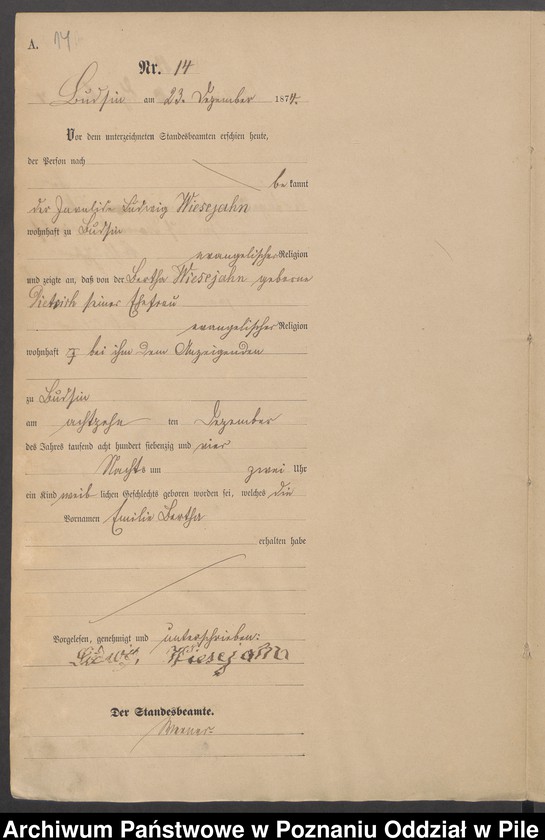 A. 14
Nr. 14
Budsin am 23. Dezember 1874.
Vor dem unterzeichneten Standesbeamten erschien heute,
der Person nach
bekannt
der Invalide Ludwig Wiesejahn
wohnhaft zu Budsin
evangelischer Religion
und zeigte an, daß von der Bertha Wiesejahn geborne
Dietrich seiner Ehefrau
evangelischer Religion
wohnhaft bei ihm dem Anzeigenden
zu Budsin
am achtzehn ten Dezember
des Jahres tausend acht hundert siebenzig und vier
Nachts um zwei Uhr
ein Kind weiblichen Geschlechts geboren worden sei, welches die
Vornamen Emilie Bertha
erhalten habe
Vorgelesen, genehmigt und unterschrieben:
Ludwig Wiesejahn
Der Standesbeamte.
Archiwum Państwowe w Poznaniu Oddział w Pile